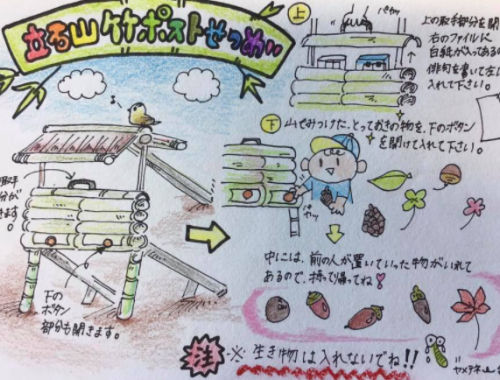 立石山竹ポストせつめい
上
パカッ
上の取手部分を開
右のファイルに
白紙が入ってあるの
俳句を書いて左に
入れて下さい。
下
山でみつけた、とっておきの物を、下のボタン
を開けて入れて下さい。
取手
分が
きます。
下の
ボタン
部分も開きます。
中には、前の人が置いていった物がいれて
あるので、持って帰ってね
注
※ 生き物は入れないでね!!
ヤメテネ